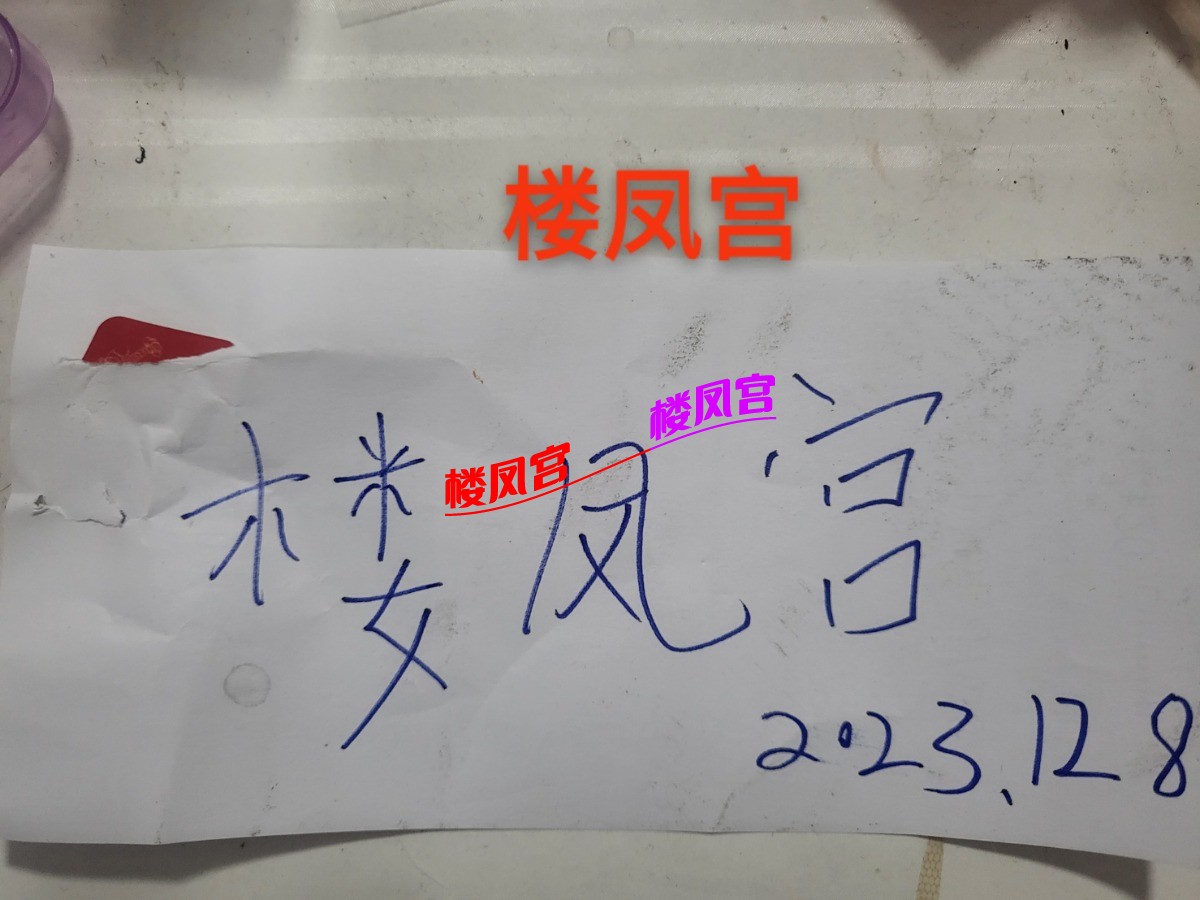 楼凤宫
楼凤宫
楼凤宫
楼凤宫
2023.12 8